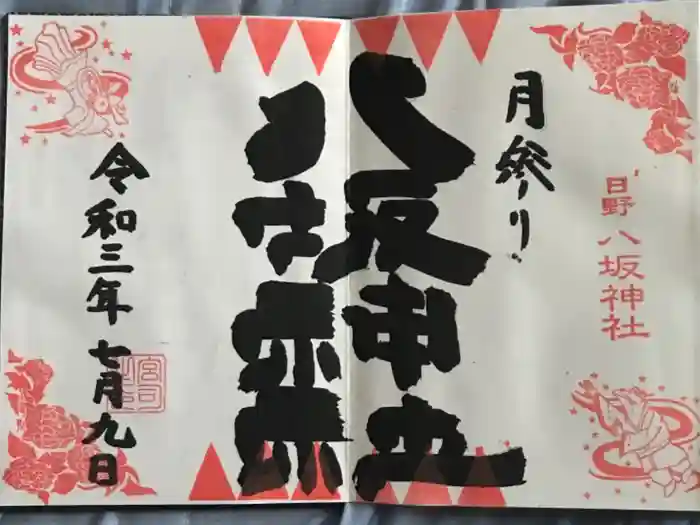 月参り
日野八坂神社
八坂神社
令和三年七月九日
宮司